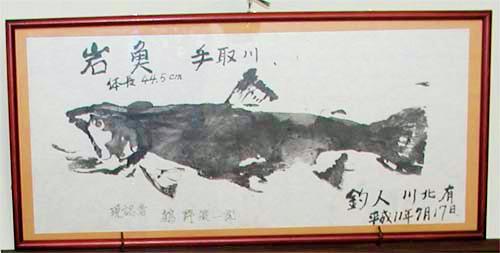 岩魚 手取川
体長 44.5cm
釣人 川北有
平成11年9月17日
現認者